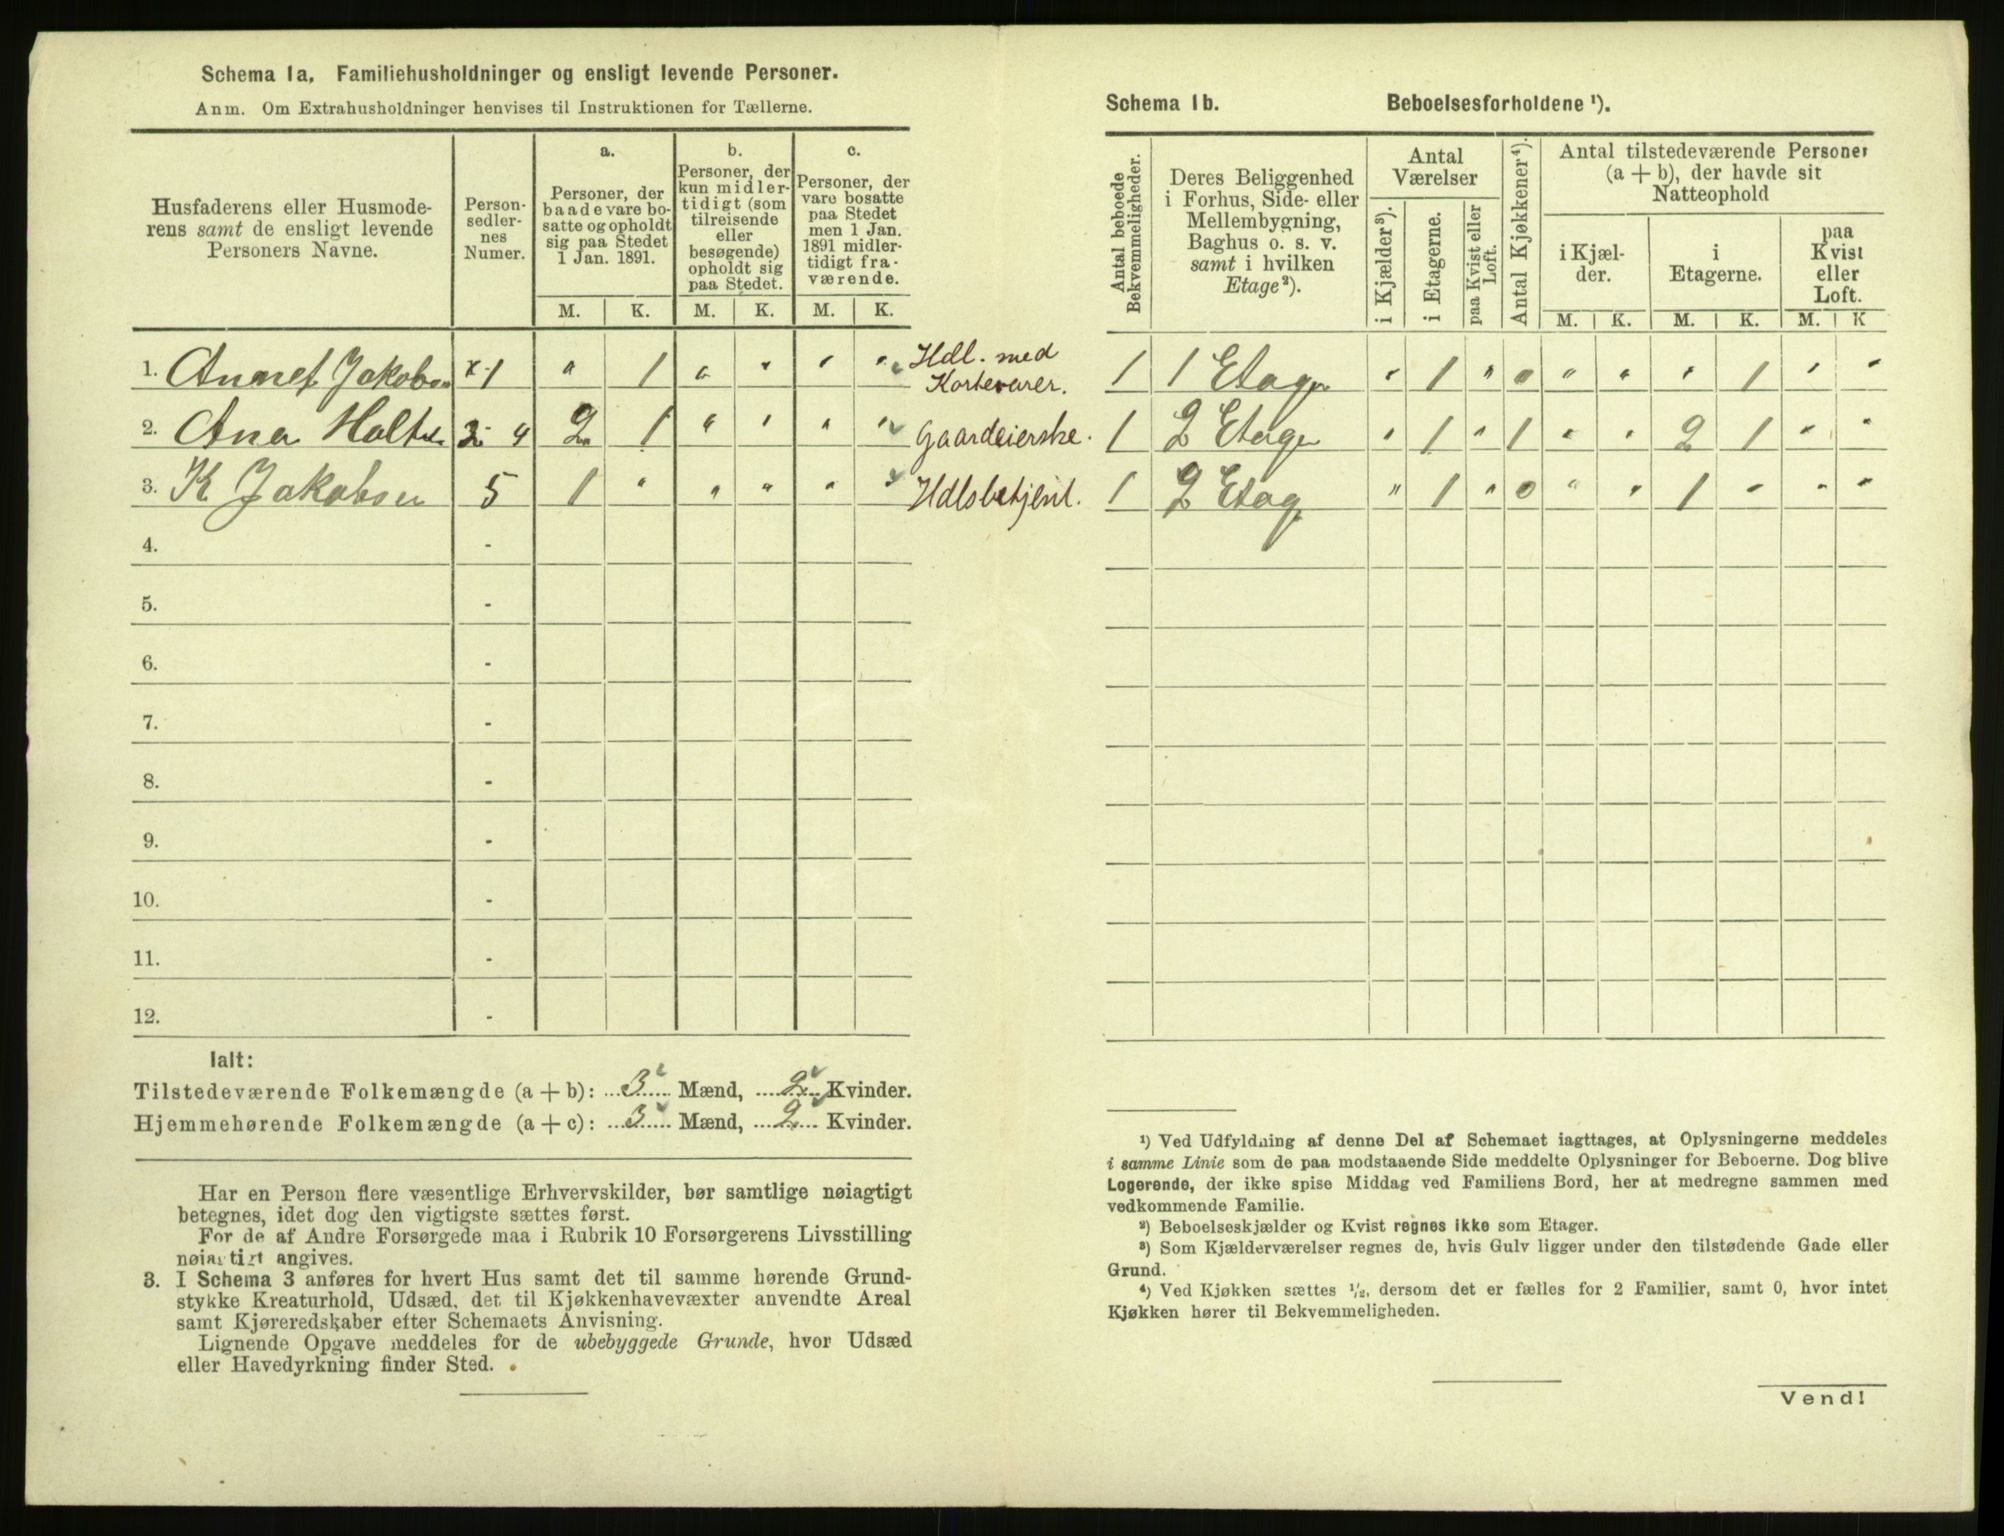 Schema 1a, Familiehusholdninger og ensligt levende Personer.
Anm. Om Extrahusholdninger henvises til Instruktionen for Tællerne.
Husfaderens eller Husmode-
rens samt de ensligt levende
Personers Navne.
Person-
sedler-
nes
Numer.
a.
Personer, der
baade vare bo-
satte og opholdt
sig paa Stedet
1 Jan. 1891.
b.
Personer, der
kun midler-
tidigt (som
tilreisende
eller
besøgende)
opholdt sig
paa Stedet.
c.
Personer, der
vare bosatte
paa Stedet
men 1 Jan.
1891 midler-
tidigt fra-
værende.
M. K. M. K. M. K.
1. Jakobsen x 1 " 1 " " " " Hdl. med
Kortevarer.
2. Ana Holt 2 - 4 2 1 " " " " Gaardeierske.
3. K Jakobsen 5 1 " " " " " Hdlsbetjent.
4. -
5. -
6. -
7. -
8. -
9. -
10. -
11. -
12. -
Ialt:
Tilstedeværende Folkemængde (a + b): 3 Mænd, 2 Kvinder.
Hjemmehørende Folkemængde (a + c): 3 Mænd, 2 Kvinder.
Har en Person flere væsentlige Erhvervskilder, bør samtlige nøiagtigt
betegnes, idet dog den vigtigste sættes først.
For de af Andre Forsørgede maa i Rubrik 10 Forsørgerens Livsstilling
nøiagtigt angives.
3. I Schema 3 anføres for hvert Hus samt det til samme hørende Grund-
stykke Kreaturhold, Udsæd, det til Kjøkkenhavevæxter anvendte Areal
samt Kjøreredskaber efter Schemaets Anvisning.
Lignende Opgave meddeles for de ubebyggede Grunde, hvor Udsæd
eller Havedyrkning finder Sted.
Schema 1b. Beboelsesforholdene ¹).
Antal beboede
Bekvemmeligheder.
Deres Beliggenhed
i Forhus, Side- eller
Mellembygning,
Baghus o. s. v.
samt i hvilken
Etage²).
Antal
Værelser
i Kjælder³).
i Etagerne.
paa Kvist eller
Loft.
Antal Kjøkkener⁴).
Antal tilstedeværende Personer
(a + b), der havde sit
Natteophold
i Kjæl-
der.
i
Etagerne.
paa
Kvist
eller
Loft.
M. K. M. K. M. K
1 1 Etage " 1 " 0 " " " 1 " "
1 2 Etage " 1 " 1 " " 2 1 " "
1 2 Etag " 1 " 0 " " 1 " " "
¹) Ved Udfyldning af denne Del af Schemaet iagttages, at Oplysningerne meddeles
i samme Linie som de paa modstaaende Side meddelte Oplysninger for Beboerne. Dog blive
Logerende, der ikke spise Middag ved Familiens Bord, her at medregne sammen med
vedkommende Familie.
²) Beboelseskjælder og Kvist regnes ikke som Etager.
³) Som Kjælderværelser regnes de, hvis Gulv ligger under den tilstødende Gade eller
Grund.
⁴) Ved Kjøkken sættes ½, dersom det er fælles for 2 Familier, samt 0, hvor intet
Kjøkken hører til Bekvemmeligheden.
Vend!